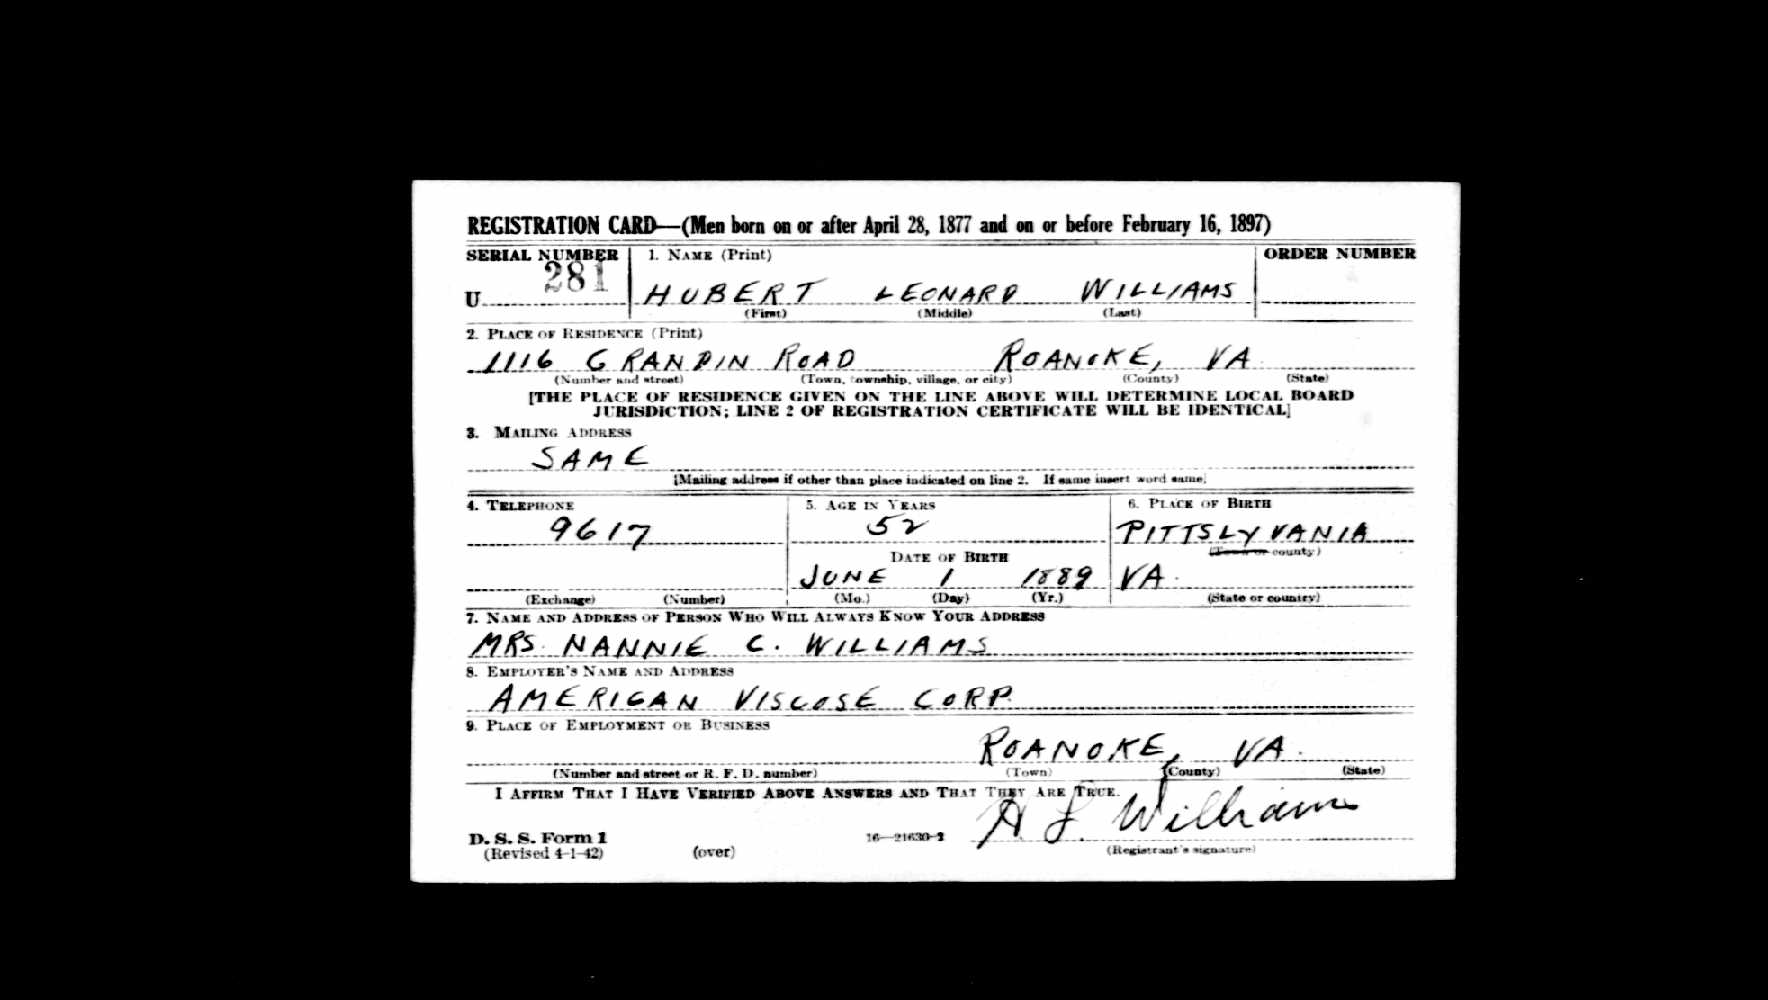 REGISTRATION CARD—(Men born on or after April 28, 1877 and on or before February 16, 1897)
SERIAL NUMBER 1. NAME (Print) ORDER NUMBER
U 281 HUBERT LEONARD WILLIAMS
(First) (Middle) (Last)
2. PLACE OF RESIDENCE (Print)
1116 GRANDIN ROAD ROANOKE, VA.
(Number and street) (Town, township, village, or city) (County) (State)
[THE PLACE OF RESIDENCE GIVEN ON THE LINE ABOVE WILL DETERMINE LOCAL BOARD
JURISDICTION; LINE 2 OF REGISTRATION CERTIFICATE WILL BE IDENTICAL]
3. MAILING ADDRESS
SAME
[Mailing address if other than place indicated on line 2. If same insert word same]
4. TELEPHONE 5. AGE IN YEARS 6. PLACE OF BIRTH
9617 52 PITTSLYVANIA
DATE OF BIRTH (Town or county)
JUNE 1 1889 VA.
(Exchange) (Number) (Mo.) (Day) (Yr.) (State or country)
7. NAME AND ADDRESS OF PERSON WHO WILL ALWAYS KNOW YOUR ADDRESS
MRS. NANNIE C. WILLIAMS
8. EMPLOYER'S NAME AND ADDRESS
AMERICAN VISCOSE CORP.
9. PLACE OF EMPLOYMENT OR BUSINESS
ROANOKE, VA.
(Number and street or R. F. D. number) (Town) (County) (State)
I AFFIRM THAT I HAVE VERIFIED ABOVE ANSWERS AND THAT THEY ARE TRUE.
H. L. Williams
D. S. S. Form 1 16—21630-2
(Revised 4-1-42) (over) (Registrant's signature)